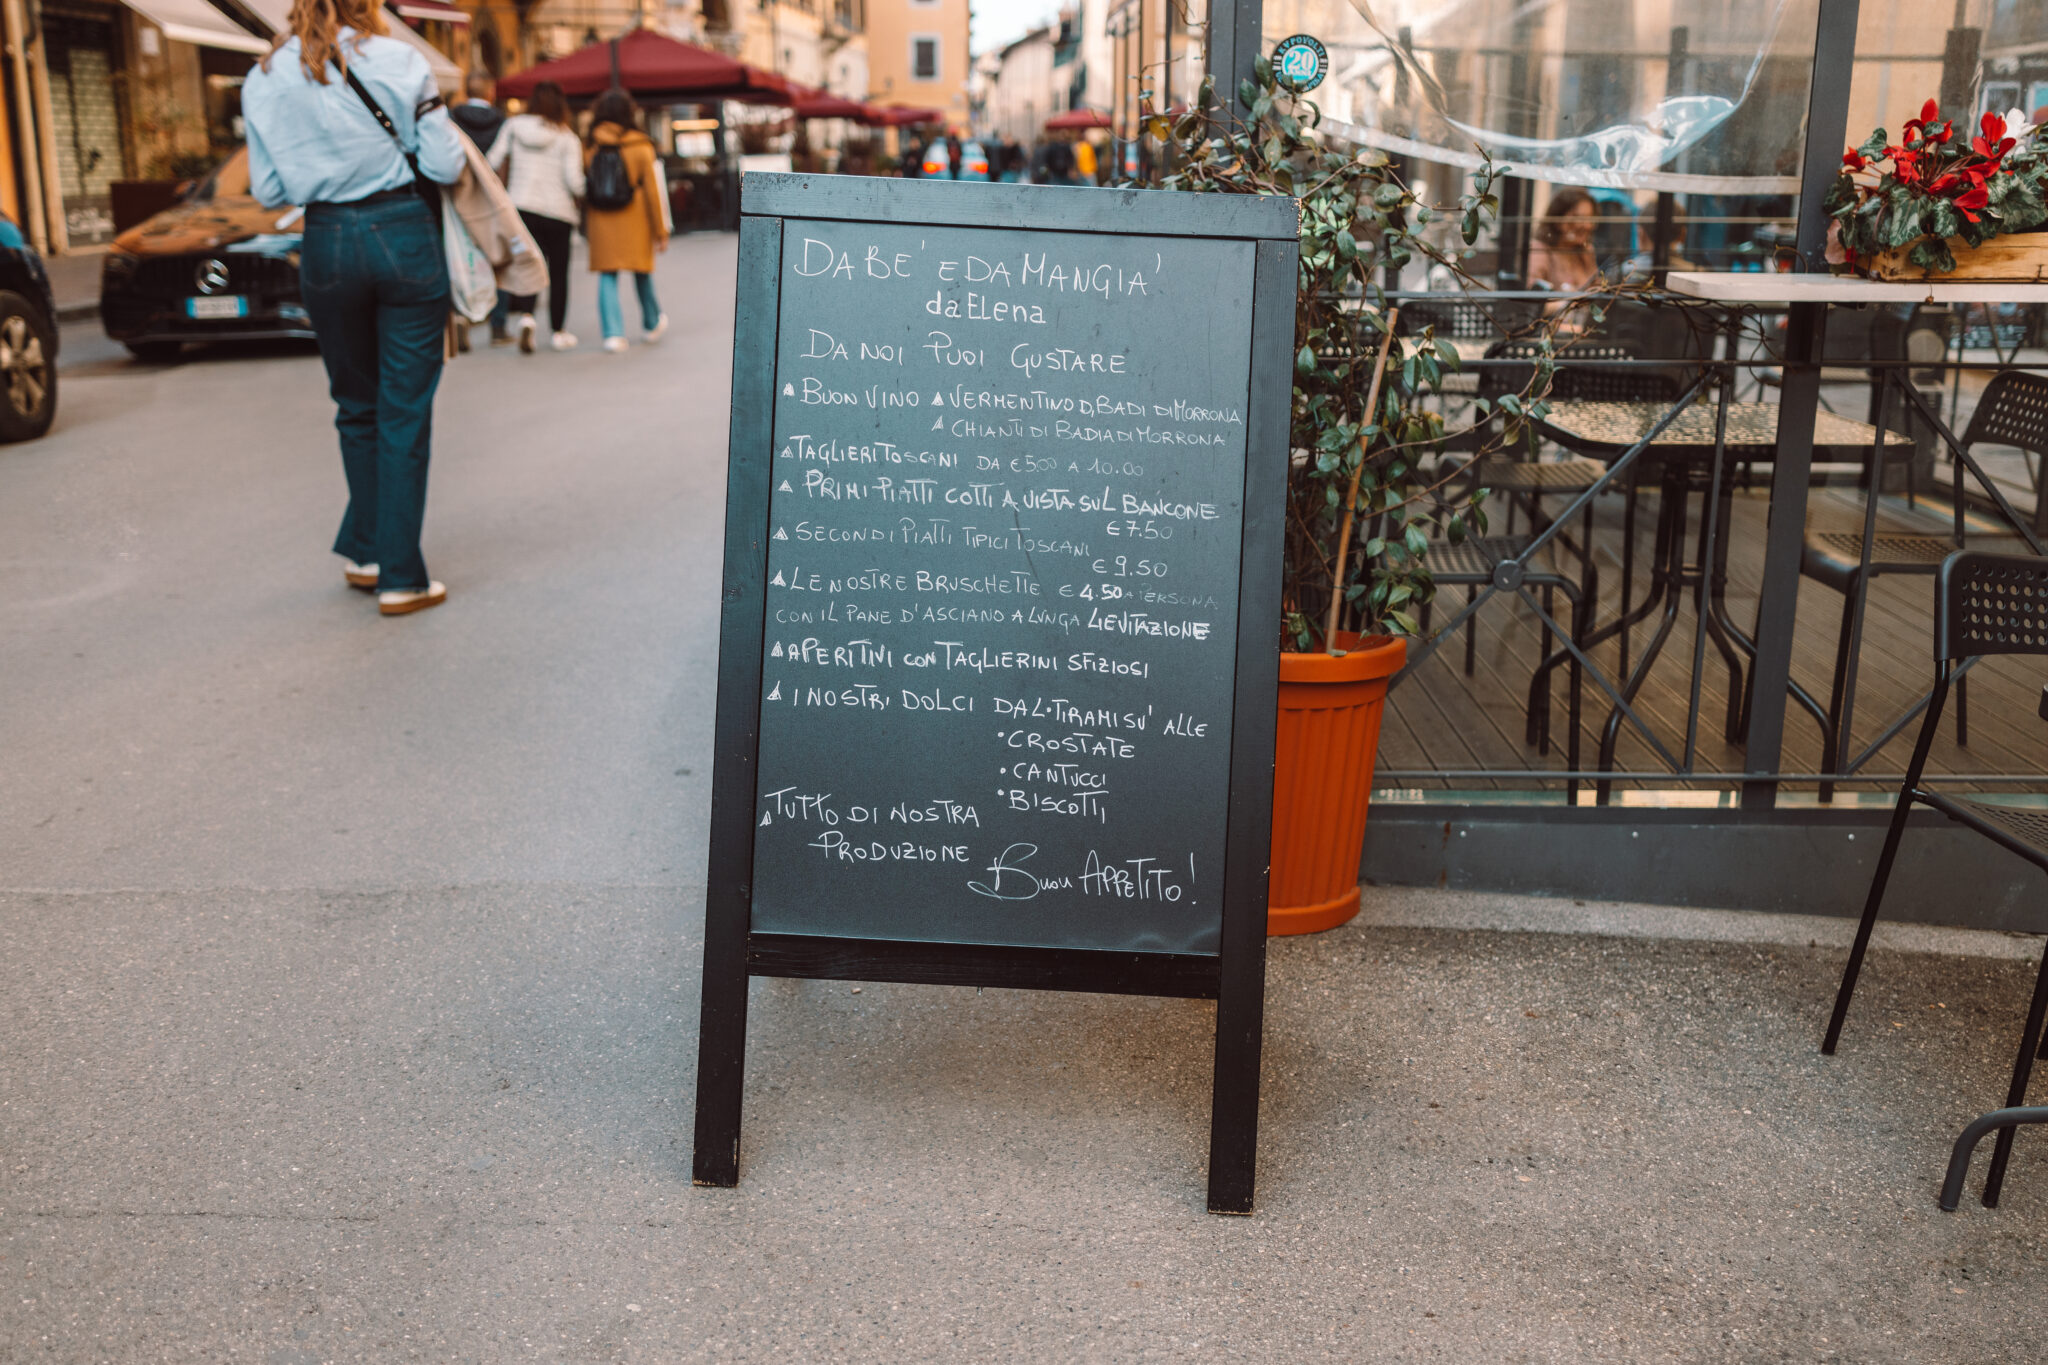 DA BE' E DA MANGIA'
da ELena
DA NOI PUOI GUSTARE
BUON VINO VERMENTINO DI BADI DI MORRONA
CHIANTI DI BADIA DI MORRONA
TAGLIERI TOSCANI DA € 5.00 A 10.00
PRIMI PIATTI COTTI A VISTA SUL BANCONE
€ 7.50
SECONDI PIATTI TIPICI TOSCANI
€ 9.50
LE NOSTRE BRUSCHETTE € 4.50 A PERSONA
CON IL PANE D'ASCIANO A LUNGA LIEVITAZIONE
APERITIVI CON TAGLIERINI SFIZIOSI
I NOSTRI DOLCI DAL TIRAMISU' ALLE
• CROSTATE
• CANTUCCI
• BISCOTTI
TUTTO DI NOSTRA
PRODUZIONE
Buon APPETITO!
20